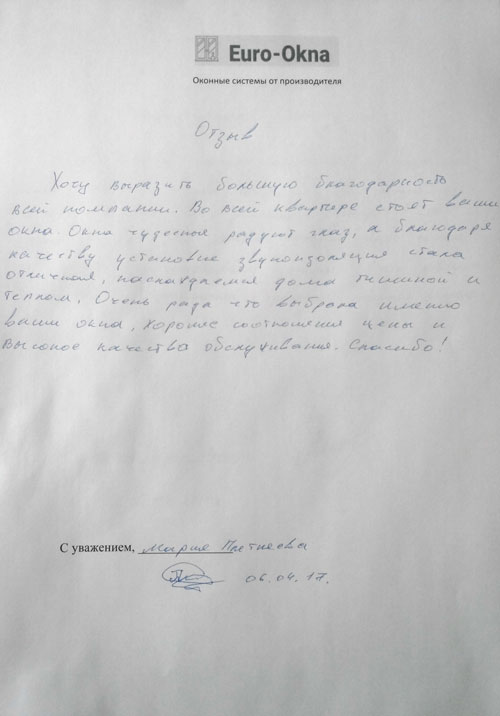 Euro-Okna
Оконные системы от производителя
Отзыв
Хочу выразить большую благодарность
всей компании. Во всей квартире стоят ваши
окна. Окна чудесные радуют глаз, а благодаря
качеству установке звукоизоляция стала
отличная, наслаждаемся дома тишиной и
теплом. Очень рада что выбрала именно
ваши окна, хорошие соотношения цены и
высокое качества обслуживания. Спасибо!
С уважением, Мария
06.04.17.